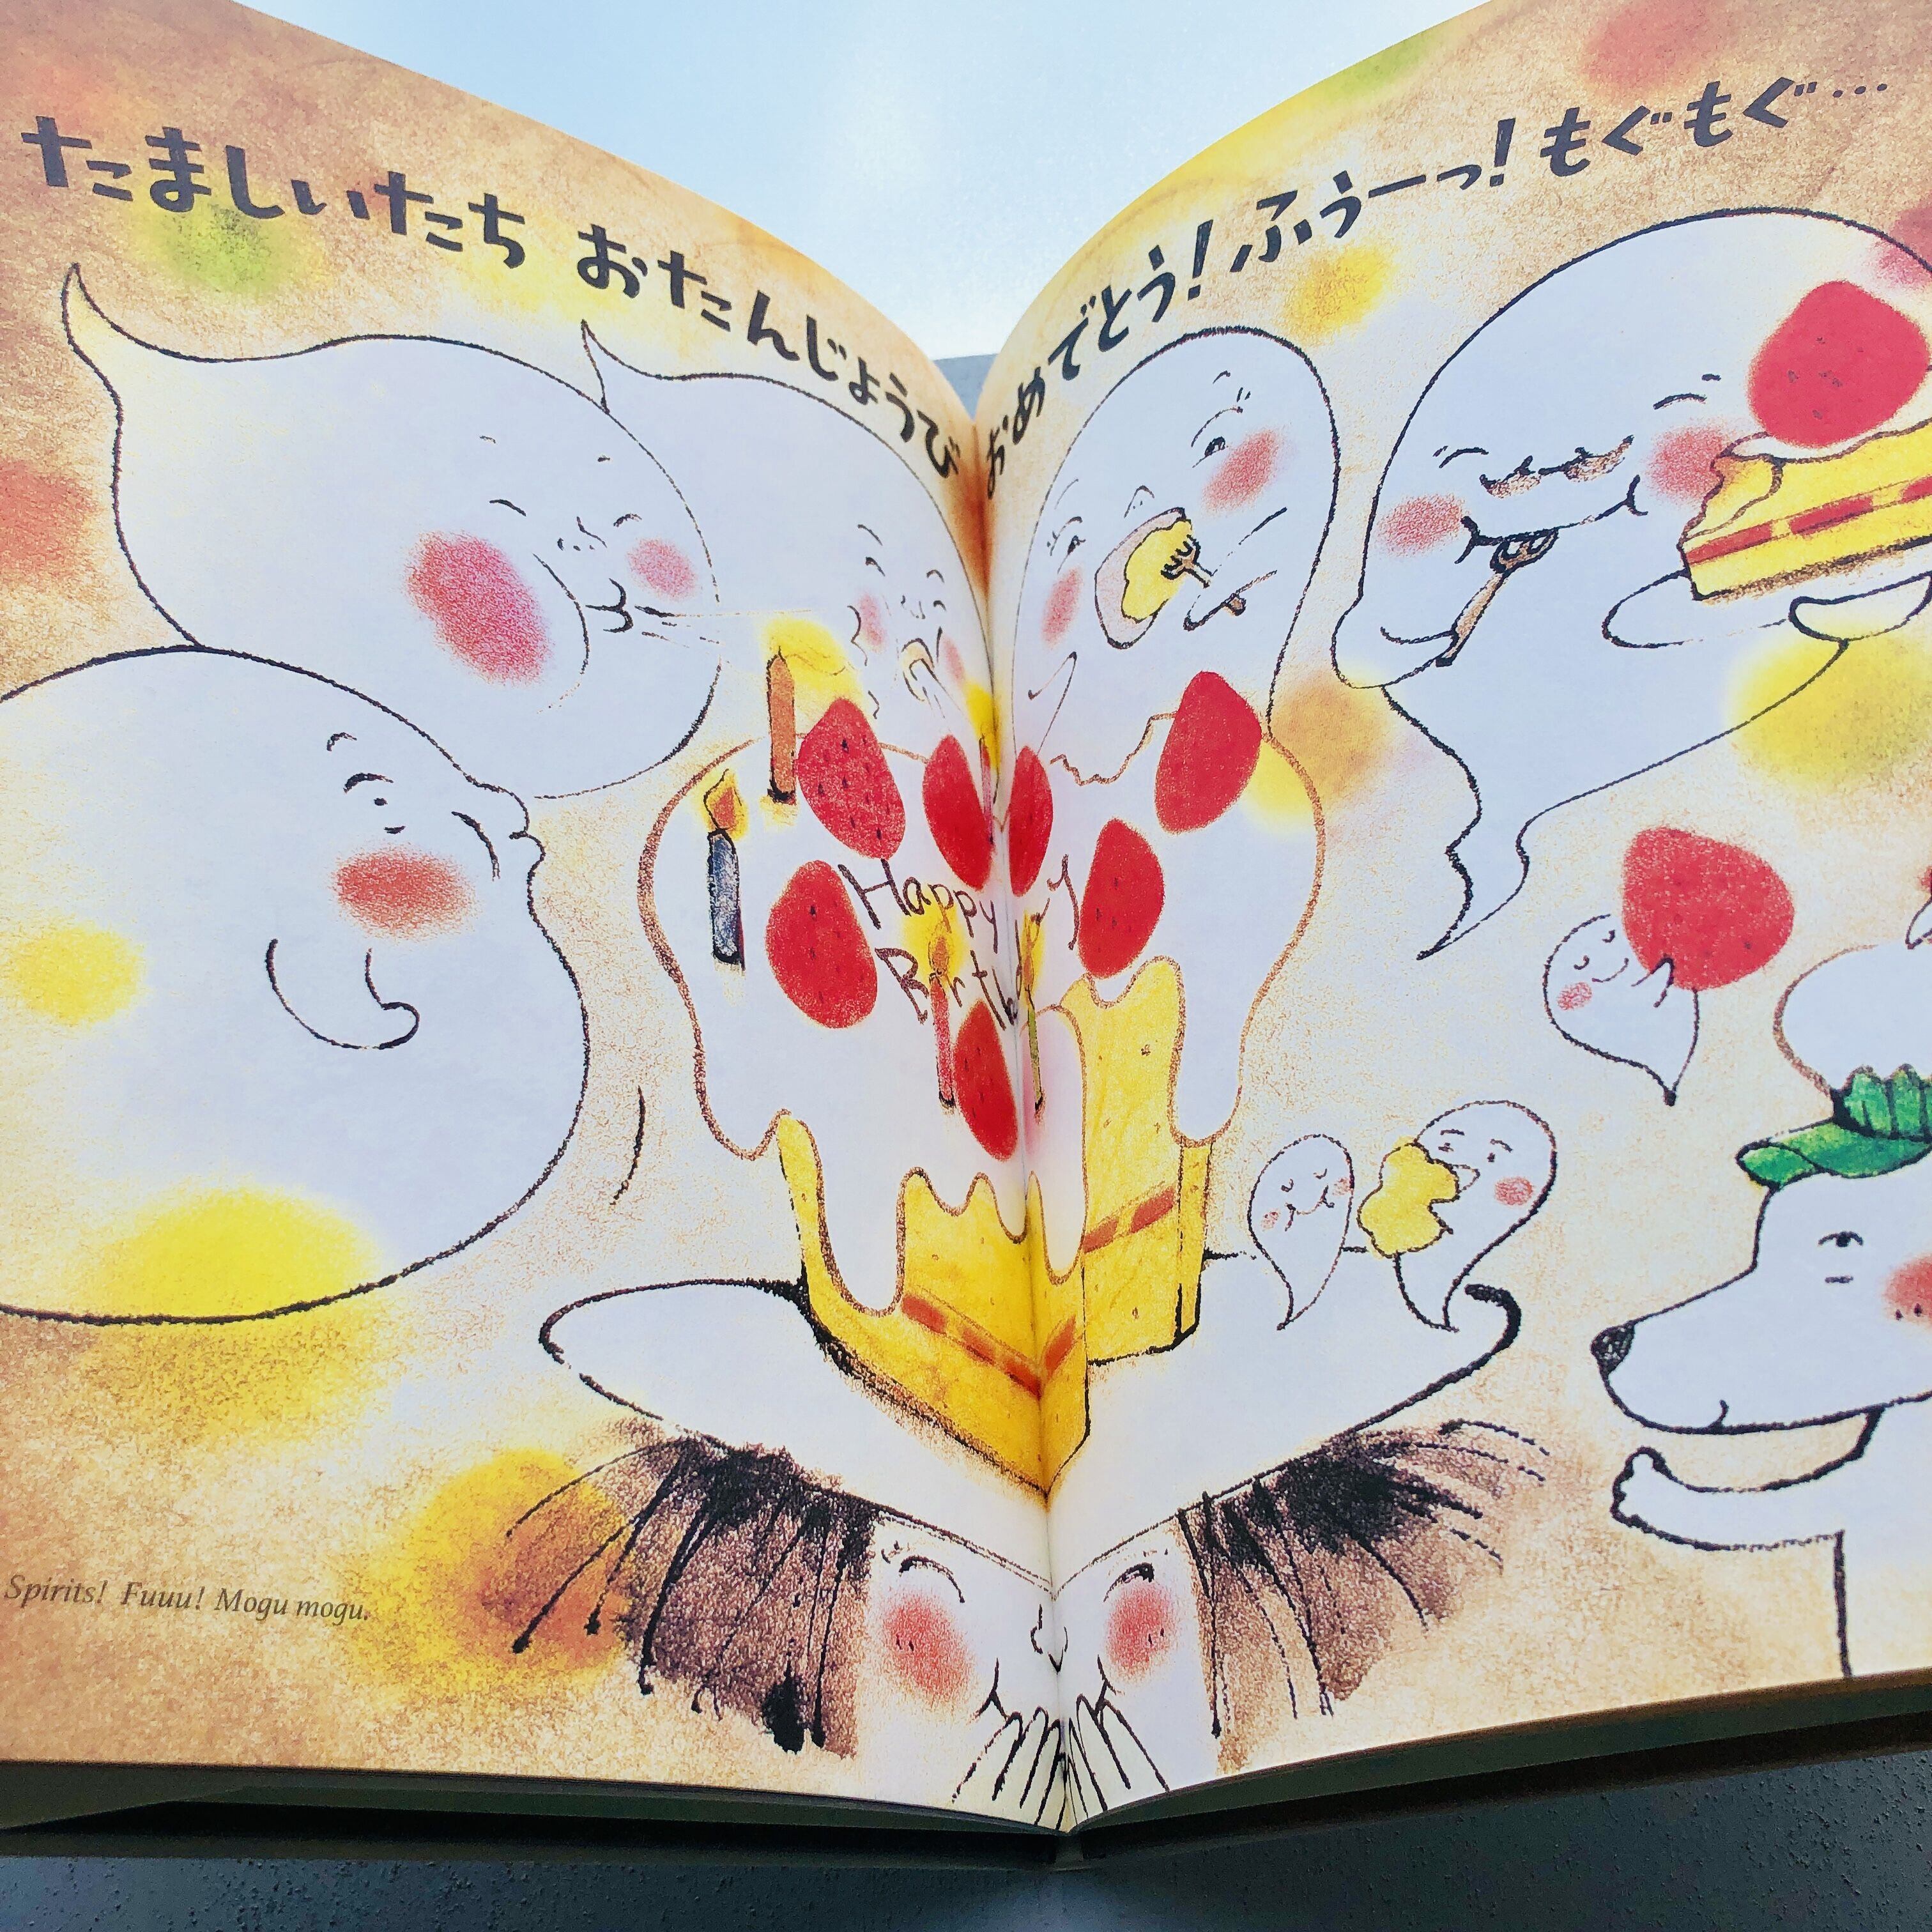 たましいたち おたんじょうび おめでとう！ふぅーっ！もぐもぐ…
Happy
Birthday
Spirits! Fuuu! Mogu mogu.